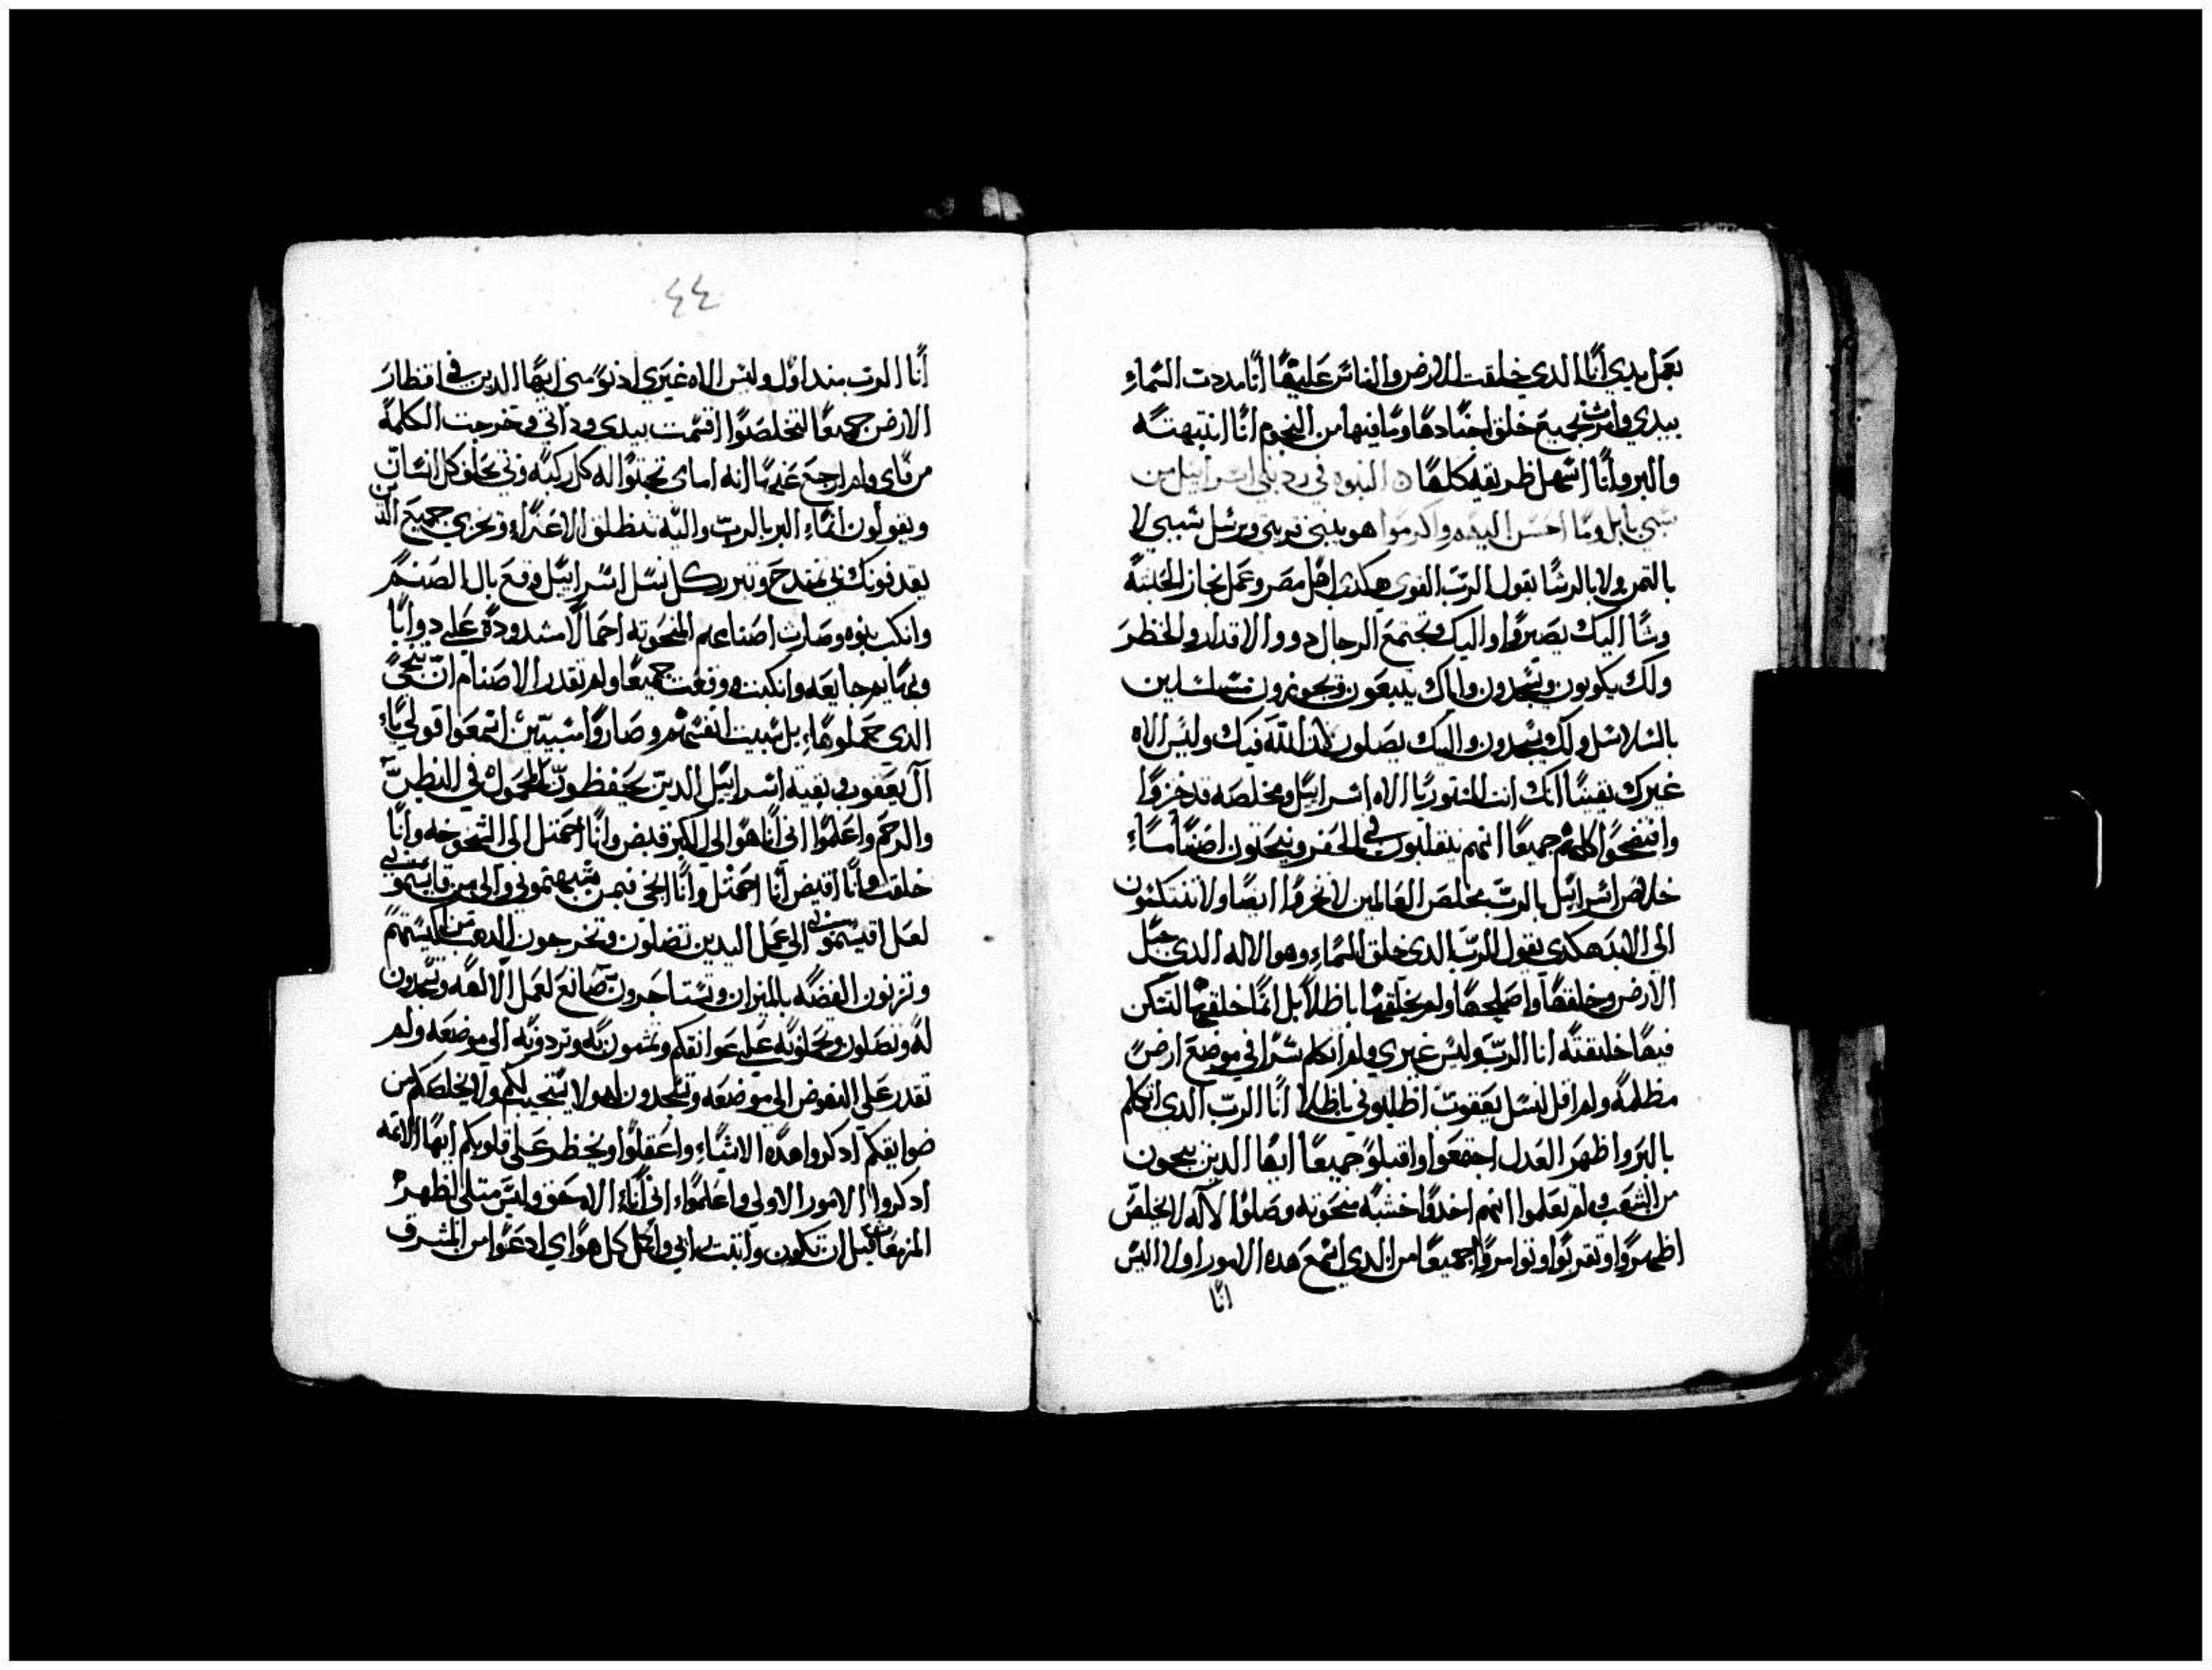 بعمل يدي انا الدي خلقت الارض والناس عليها انا مددت السماء
بيدي وامرت بجميع خلق اجنادها وما فيها من النجوم انا انتبهته
والبر وانا اسهل طريقه كلها النبوه في رد بني اسراييل من
سبي بابل وما احسن اليه واكرموا هو يبني قريتي ويرسل سبيي لا
بالتمن ولا بالرشا يقول الرب القوي هكذا اهل مصر وعمل تجار الحبشة
وسبا اليك يصيروا واليك وتجتمع الرجال دووا الاقدار والخطر
ولك يكونون ويسجدون واياك يتبعون ويجوزون متسلسلين
بالسلاسل ولك يسجدون واليك يصلون لان الله فيك وليس الاه
غيرك يقينا انك انت المستور يا الاه اسراييل ومخلصه قد خزوا
وافتضحوا كلهم جميعا انهم يتقلبون في الحفر وينحلون اصناما
خلاص اسراييل بالرب مخلص العالمين لا تخزوا ايضا ولا تفتكون
الى الابد هكدي يقول الرب الدي خلق السماء وهو الاله الدي جبل
الارض وخلقها واصلحها ولم يخلقها باطلا بل انما خلقها لتسكن
فيها خليقته انا الرب وليس غيري ولم اتكلم سرا في موضع ارض
مظلمة ولم اقل لنسل يعقوب اطلبوني باطلا انا الرب الدي اتكلم
بالبر واظهر العدل اجتمعوا واقبلو جميعا ايها الدين ينجون
من الشعوب لم يعلموا انهم اخدوا خشبه منحوته وصلوا لاله لا يخلص
اظهروا وتقربوا وتوامروا جميعا من الدي اسمع هده الامور اولا اليس
انا
٤٤
انا الرب منذ اول وليس الاه غيري ادنو مني ايها الدين في اقطار
الارض جميعا لتخلصوا اقسمت بيدي وذاتي وخرجت الكلمة
من فاي ولم ارجع عنها انه اماي تجثوا له كل ركبه وبي يحلف كل لسان
ويقولون انما البر بالرب واليه تنطلق الاعزاء ويخزي جميع الذين
يقدفونك بي يمتدح ويتبرر كل نسل اسراييل وقع بال الصنم
وانكب نبوه وصارت اصنامهم المنحوته احمالا مشدودة على دوابا
وبهايم جايعه وانكبت ووقعت جميعا ولم تقدر الاصنام ان تنجي
الدي حملوها بل سبيت انفسهم وصاروا مسبيين اسمعوا قولي يا
آل يعقوب وبقية اسراييل الدين يحفظون المحمول في البطن
والرحم واعلموا اني انا هو الى الكبر قبض وانا احتمل الى الشيخوخه وانا
خلقت وانا اقبض انا احتمل وانا انجي فبمن شبهتموني والى من قايستموني
لعل اقيستموني الى عمل اليدين تضلون وتخرجون الدهب من اكيستهم
وتزنون الفضه بالميزان وتستاجرون صانع لعمل الالهه ويسجدون
له ويصلون ويحملونه على عواتقكم وتمشون به وتردونه الى موضعه ولم
تقدر على النهوض الى موضعه وتسجدون له ولا يستجيب لكم ولا يخلصكم من
ضوايقكم ادكروا هدة الاشياء واعقلوا ويخطر على قلوبكم ايها الاثمه
ادكروا الامور الاولى واعلموا اني انا الاه حق وليس متلي لظهر
قبل ان تكون وتثبت رايي واكمل كل هواي ادعوا من المشرق